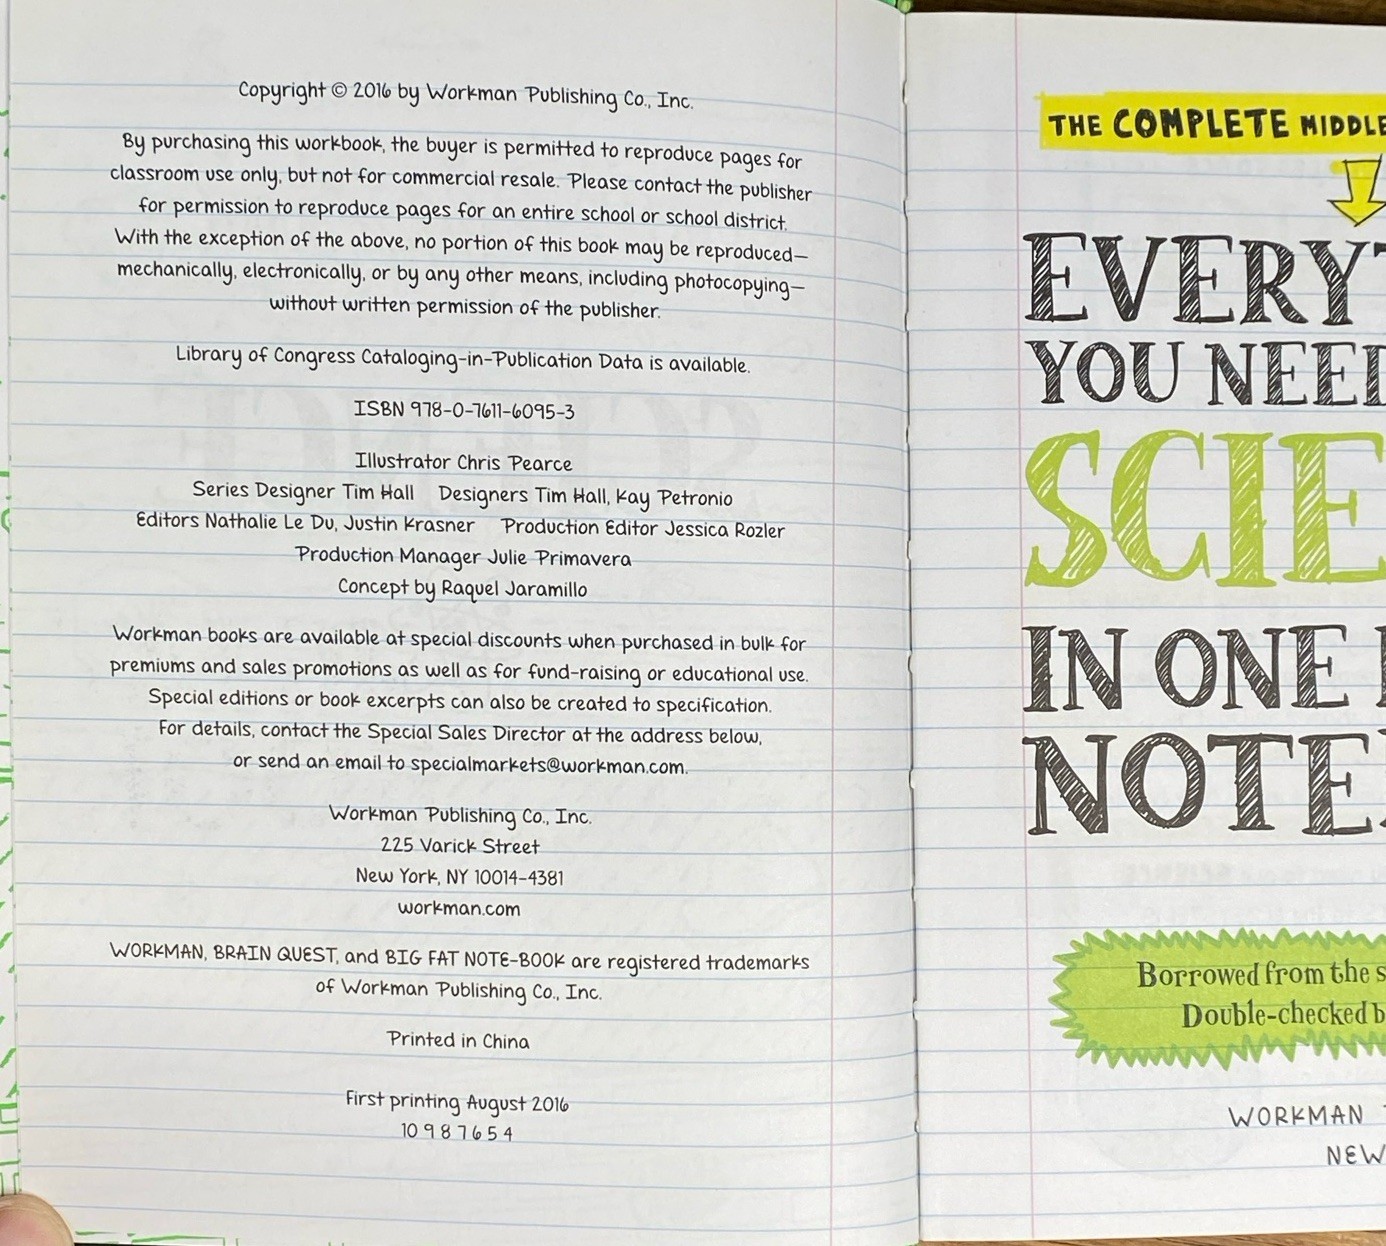 Copyright © 2016 by Workman Publishing Co., Inc.
By purchasing this workbook, the buyer is permitted to reproduce pages for
classroom use only, but not for commercial resale. Please contact the publisher
for permission to reproduce pages for an entire school or school district.
With the exception of the above, no portion of this book may be reproduced—
mechanically, electronically, or by any other means, including photocopying—
without written permission of the publisher.
Library of Congress Cataloging-in-Publication Data is available.
ISBN 978-0-7611-6095-3
Illustrator Chris Pearce
Series Designer Tim Hall Designers Tim Hall, Kay Petronio
Editors Nathalie Le Du, Justin Krasner Production Editor Jessica Rozler
Production Manager Julie Primavera
Concept by Raquel Jaramillo
Workman books are available at special discounts when purchased in bulk for
premiums and sales promotions as well as for fund-raising or educational use.
Special editions or book excerpts can also be created to specification.
For details, contact the Special Sales Director at the address below,
or send an email to specialmarkets@workman.com.
Workman Publishing Co., Inc.
225 Varick Street
New York, NY 10014-4381
workman.com
WORKMAN, BRAIN QUEST, and BIG FAT NOTE-BOOK are registered trademarks
of Workman Publishing Co., Inc.
Printed in China
First printing August 2016
10 9 8 7 6 5 4
THE COMPLETE MIDDLE
EVERY
YOU NEED
SCIE
IN ONE
NOTE
Borrowed from the s
Double-checked b
WORKMAN
NEW